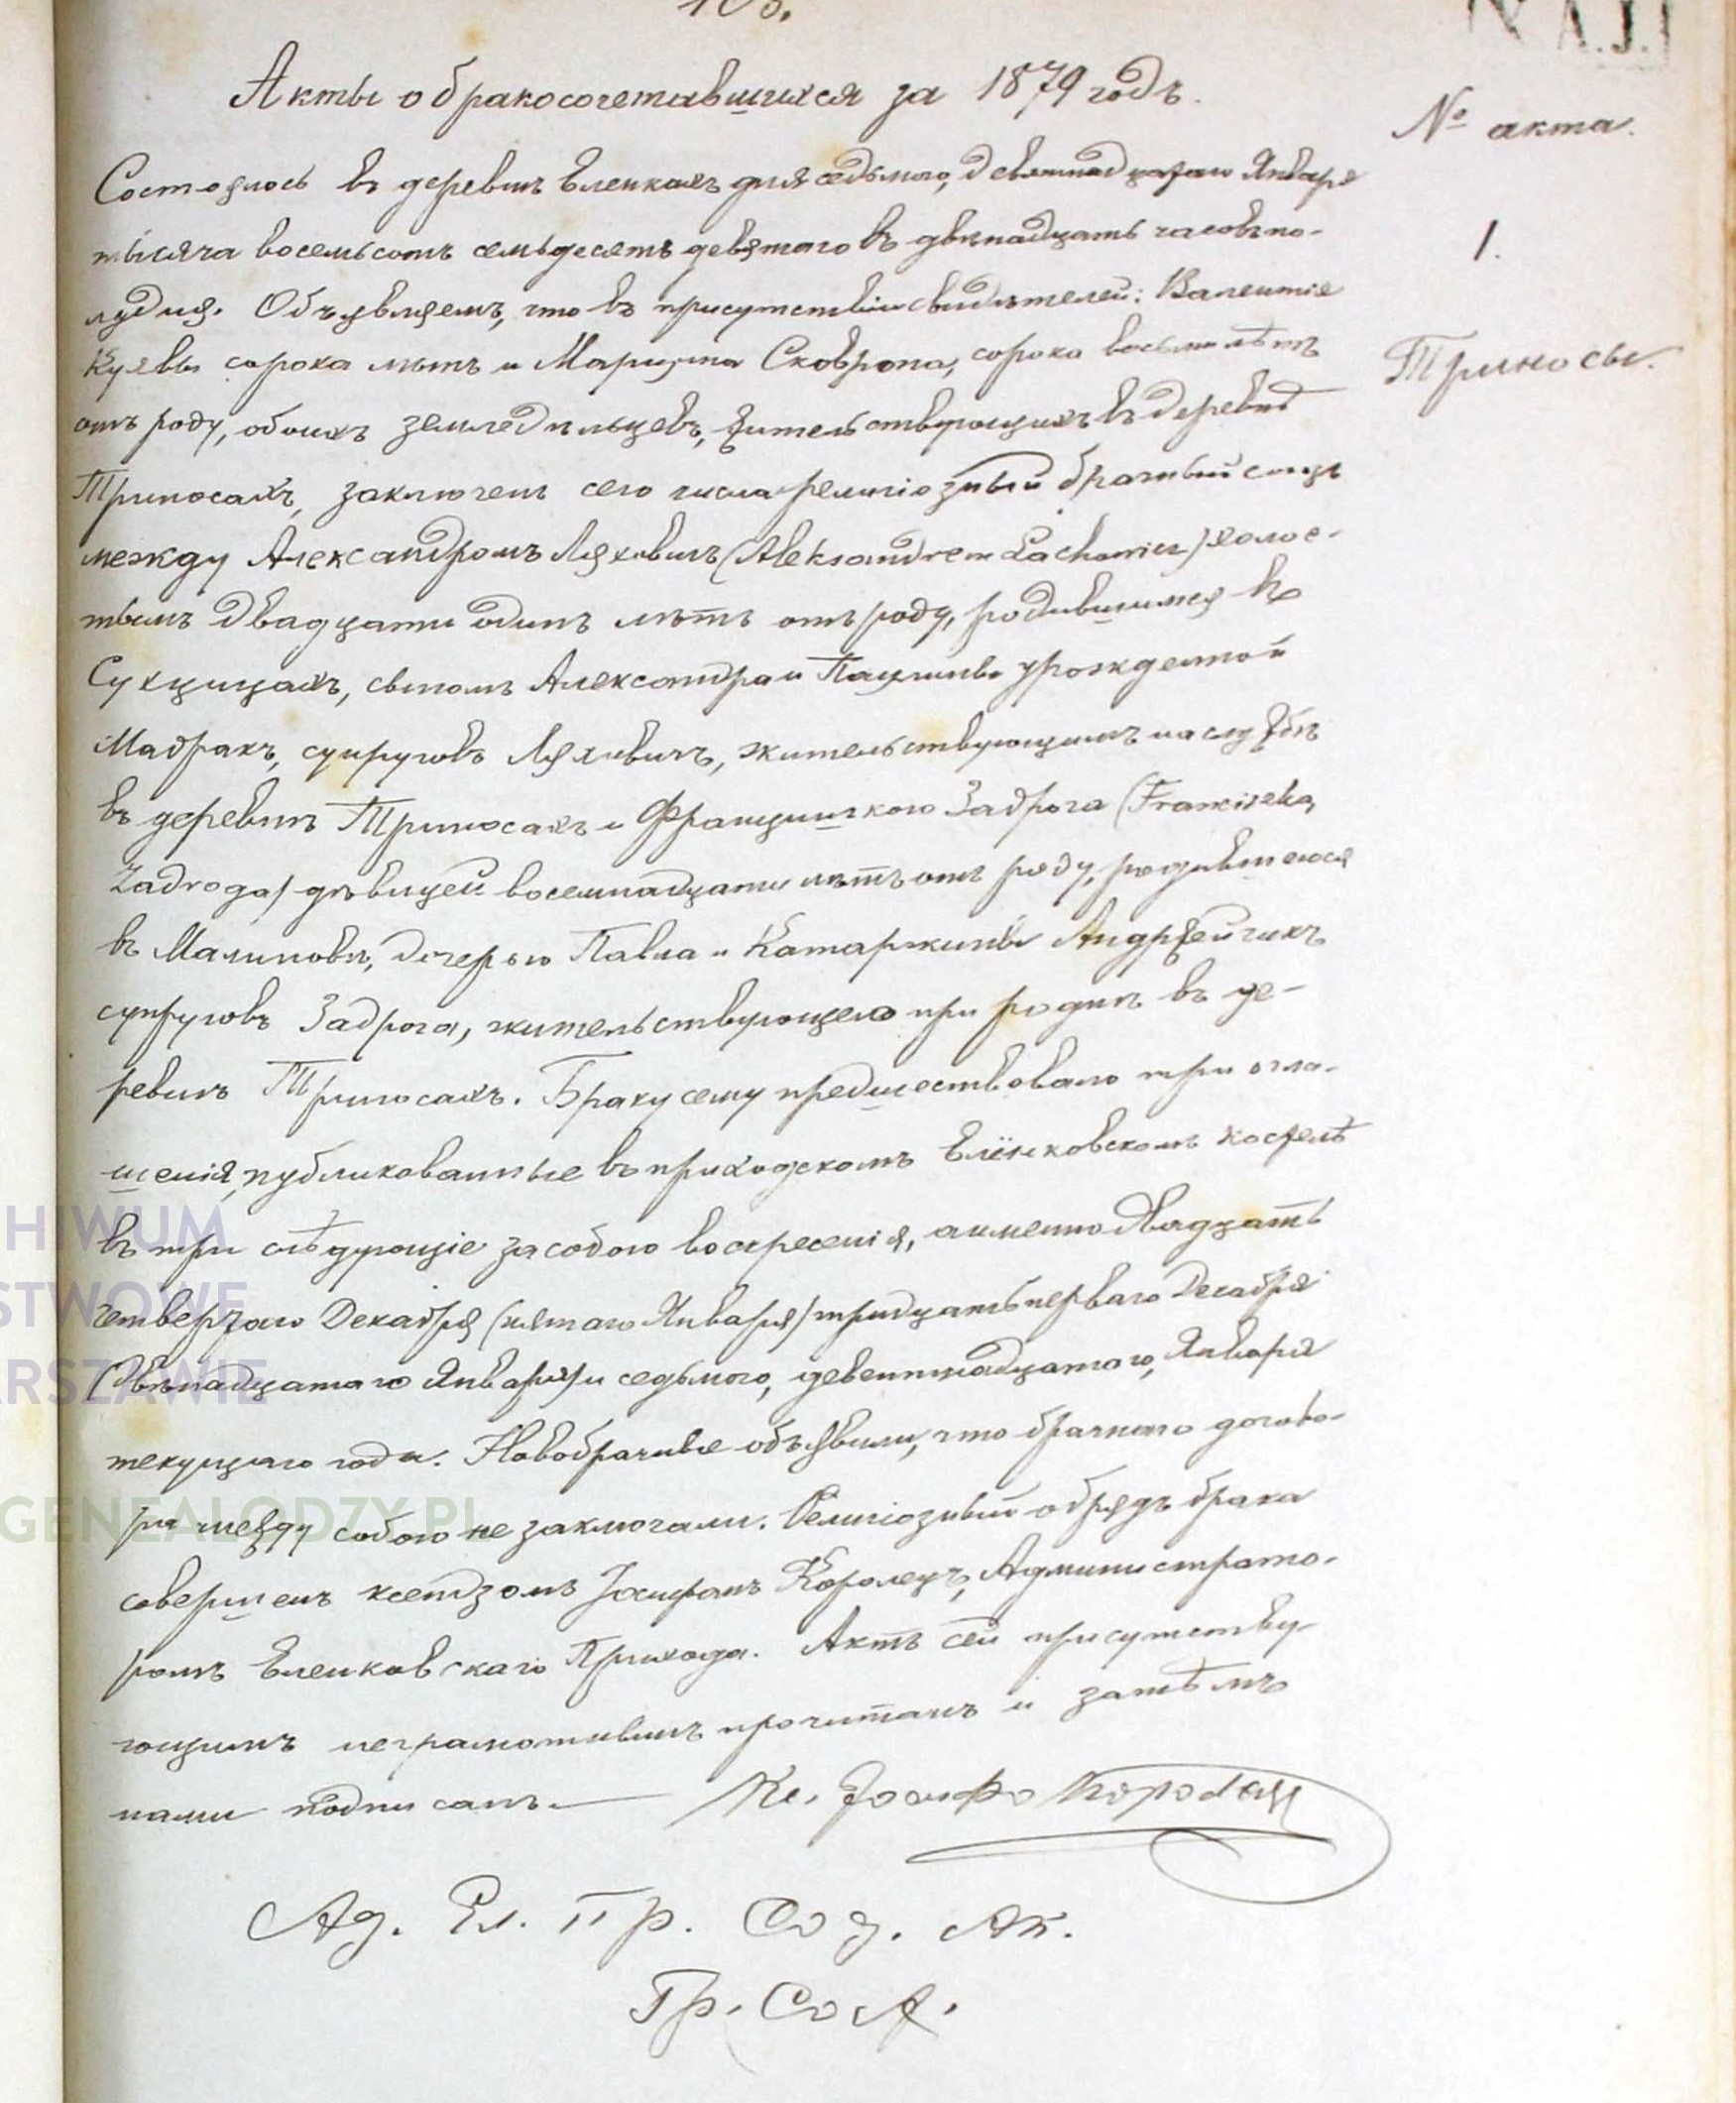 Акты о бракосочетавшихся за 1879 годъ.
№ акта.
1.
Триносы.
Состоялось въ деревнѣ Еленкахъ дня седьмого, девятнадцатаго Января
тысяча восемьсотъ семьдесятъ девятаго въ двѣнадцать часовъ по-
лудня. Объявляемъ, что въ присутствіи свидѣтелей: Валентіе
Куявы сорока лѣтъ и Марцина Сковрона, сорока восьми лѣтъ
отъ роду, обоихъ земледѣльцевъ, жительствующихъ въ деревнѣ
Триносахъ, заключенъ сего числа религіозный брачный союзъ
между Александромъ Ляховичъ (Aleksandrem Lachowicz) холос-
тымъ двадцати одинъ лѣтъ отъ роду, родившимся въ
сыномъ Александра и Паулины урожденной
Мадракъ, супруговъ Ляховичъ, жительствующимъ на службѣ
въ деревнѣ Триносахъ и Францишкою Задрога (Franciszką
Zadroga) дѣвицей восемнадцати лѣтъ отъ роду, родившеюся
въ Малиновѣ, дочерью Павла и Катаржины Андржейчикъ
супруговъ Задрога, жительствующею при родинѣ въ де-
ревнѣ Триносахъ. Браку сему предшествовало три огла-
шенія, публикованные въ приходскомъ Елёнковскомъ костелѣ
въ три слѣдующіе за собою воскресенія, а именно двадцать
четвертаго Декабря (пятаго Января) тридцать перваго Декабря
(двѣнадцатаго Января) и седьмого, девятнадцатаго, Января
текущаго года. Новобрачные объявили, что брачнаго догово-
ра между собою не заключали. Религіозный обрядъ брака
совершенъ ксендзомъ Іосифомъ Королецъ, Администрато-
ромъ Еленковскаго Прихода. Актъ сей присутству-
ющимъ неграмотнымъ прочитанъ и затѣмъ
нами подписанъ. Кс. Іосифъ
Ад. Ел. Пр. Сод. Ак.
Гр. Сост.
ARSZAWIE
GENEALODZY.PL